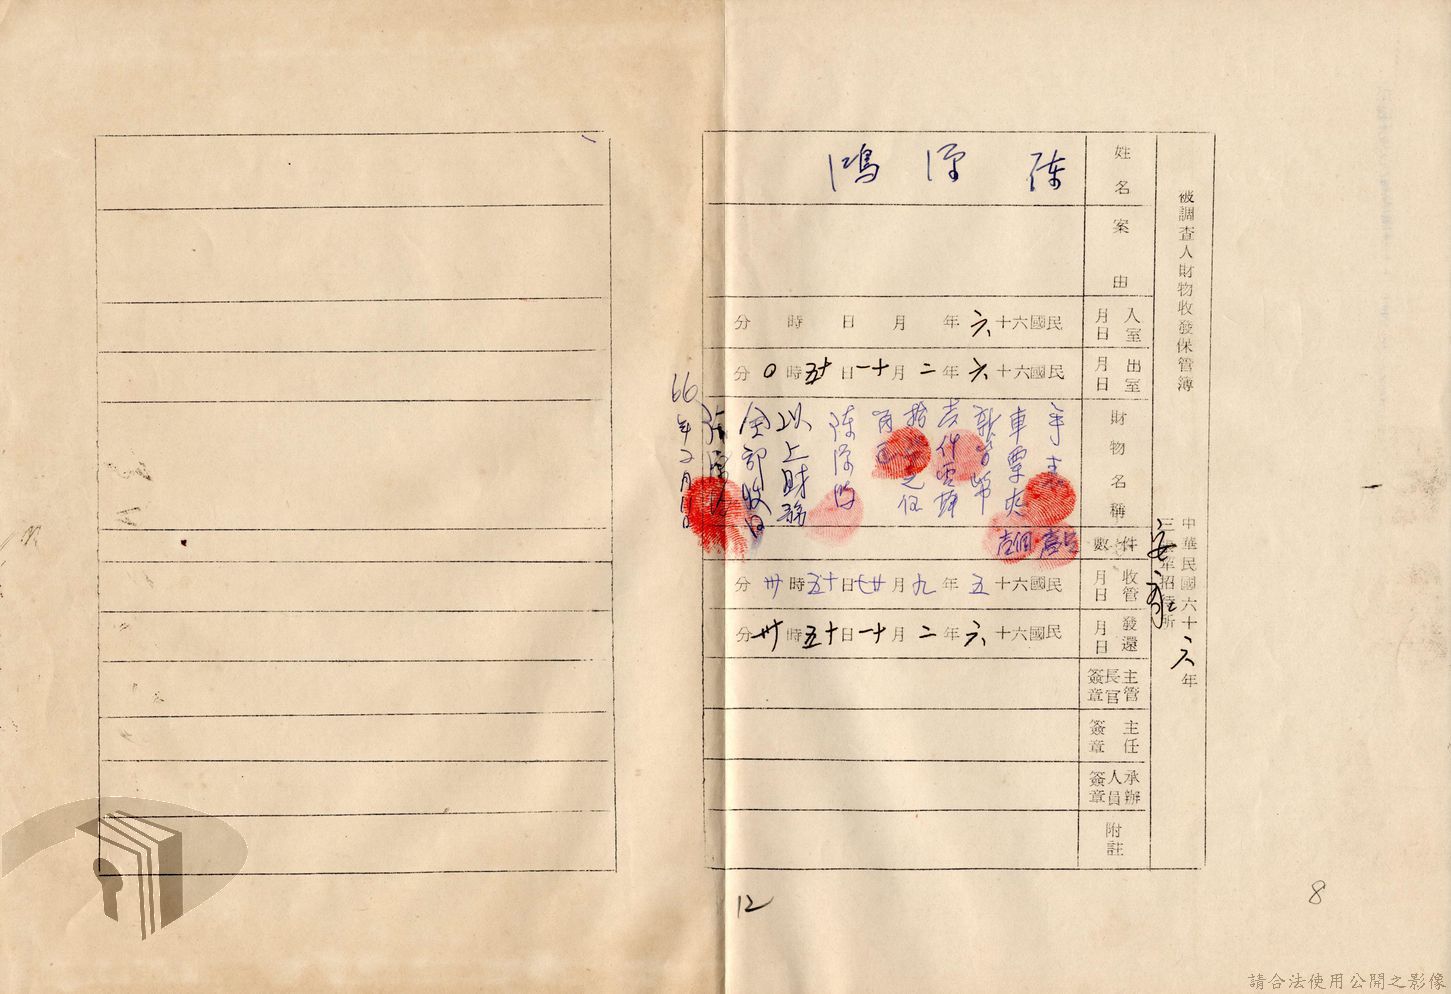 被調查人財物收發保管簿
中華民國六十六年
安康
三十年招待所
姓名
陳 深 鴻
案由
入室月日
民國六十六年 月 日 時 分
出室月日
民國六十六年二月十一日十五時0分
財物名稱
手表
車票夾
新台幣
壹仟零肆
拾之伍
角正
陳深鴻
以上財物
全部收回
陳深鴻
66年2月11日
件數
壹只
壹個
收管月日
民國六十五年九月廿七日十五時卅分
發還月日
民國六十六年二月十一日十五時卅分
主管長官簽章
主任簽章
承辦人員簽章
附註
12
8
請合法使用公開之影像